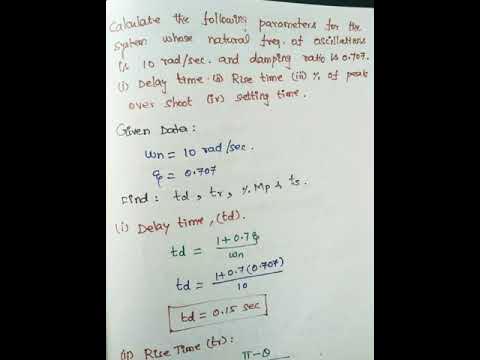 Calculate the following parameters for the
system whose natural freq. of oscillations
is 10 rad/sec. and damping ratio is 0.707.
(i) Delay time (ii) Rise time (iii) % of peak
over shoot (iv) setting time.
Given Data:
ωn = 10 rad/sec.
ξ = 0.707
Find: td, tr, % Mp & ts.
(i) Delay time, (td).
td = 1+0.7ξ / ωn
td = 1+0.7(0.707) / 10
td = 0.15 sec
(ii) Rise Time (tr):
π-θ